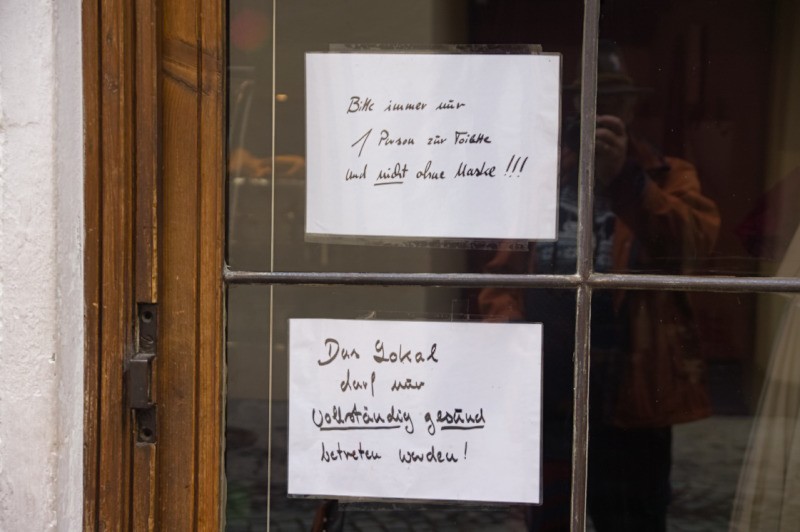 Bitte immer nur
1 Person zur Toilette
und nicht ohne Maske!!!
Das Lokal
darf nur
vollständig gesund
betreten werden!